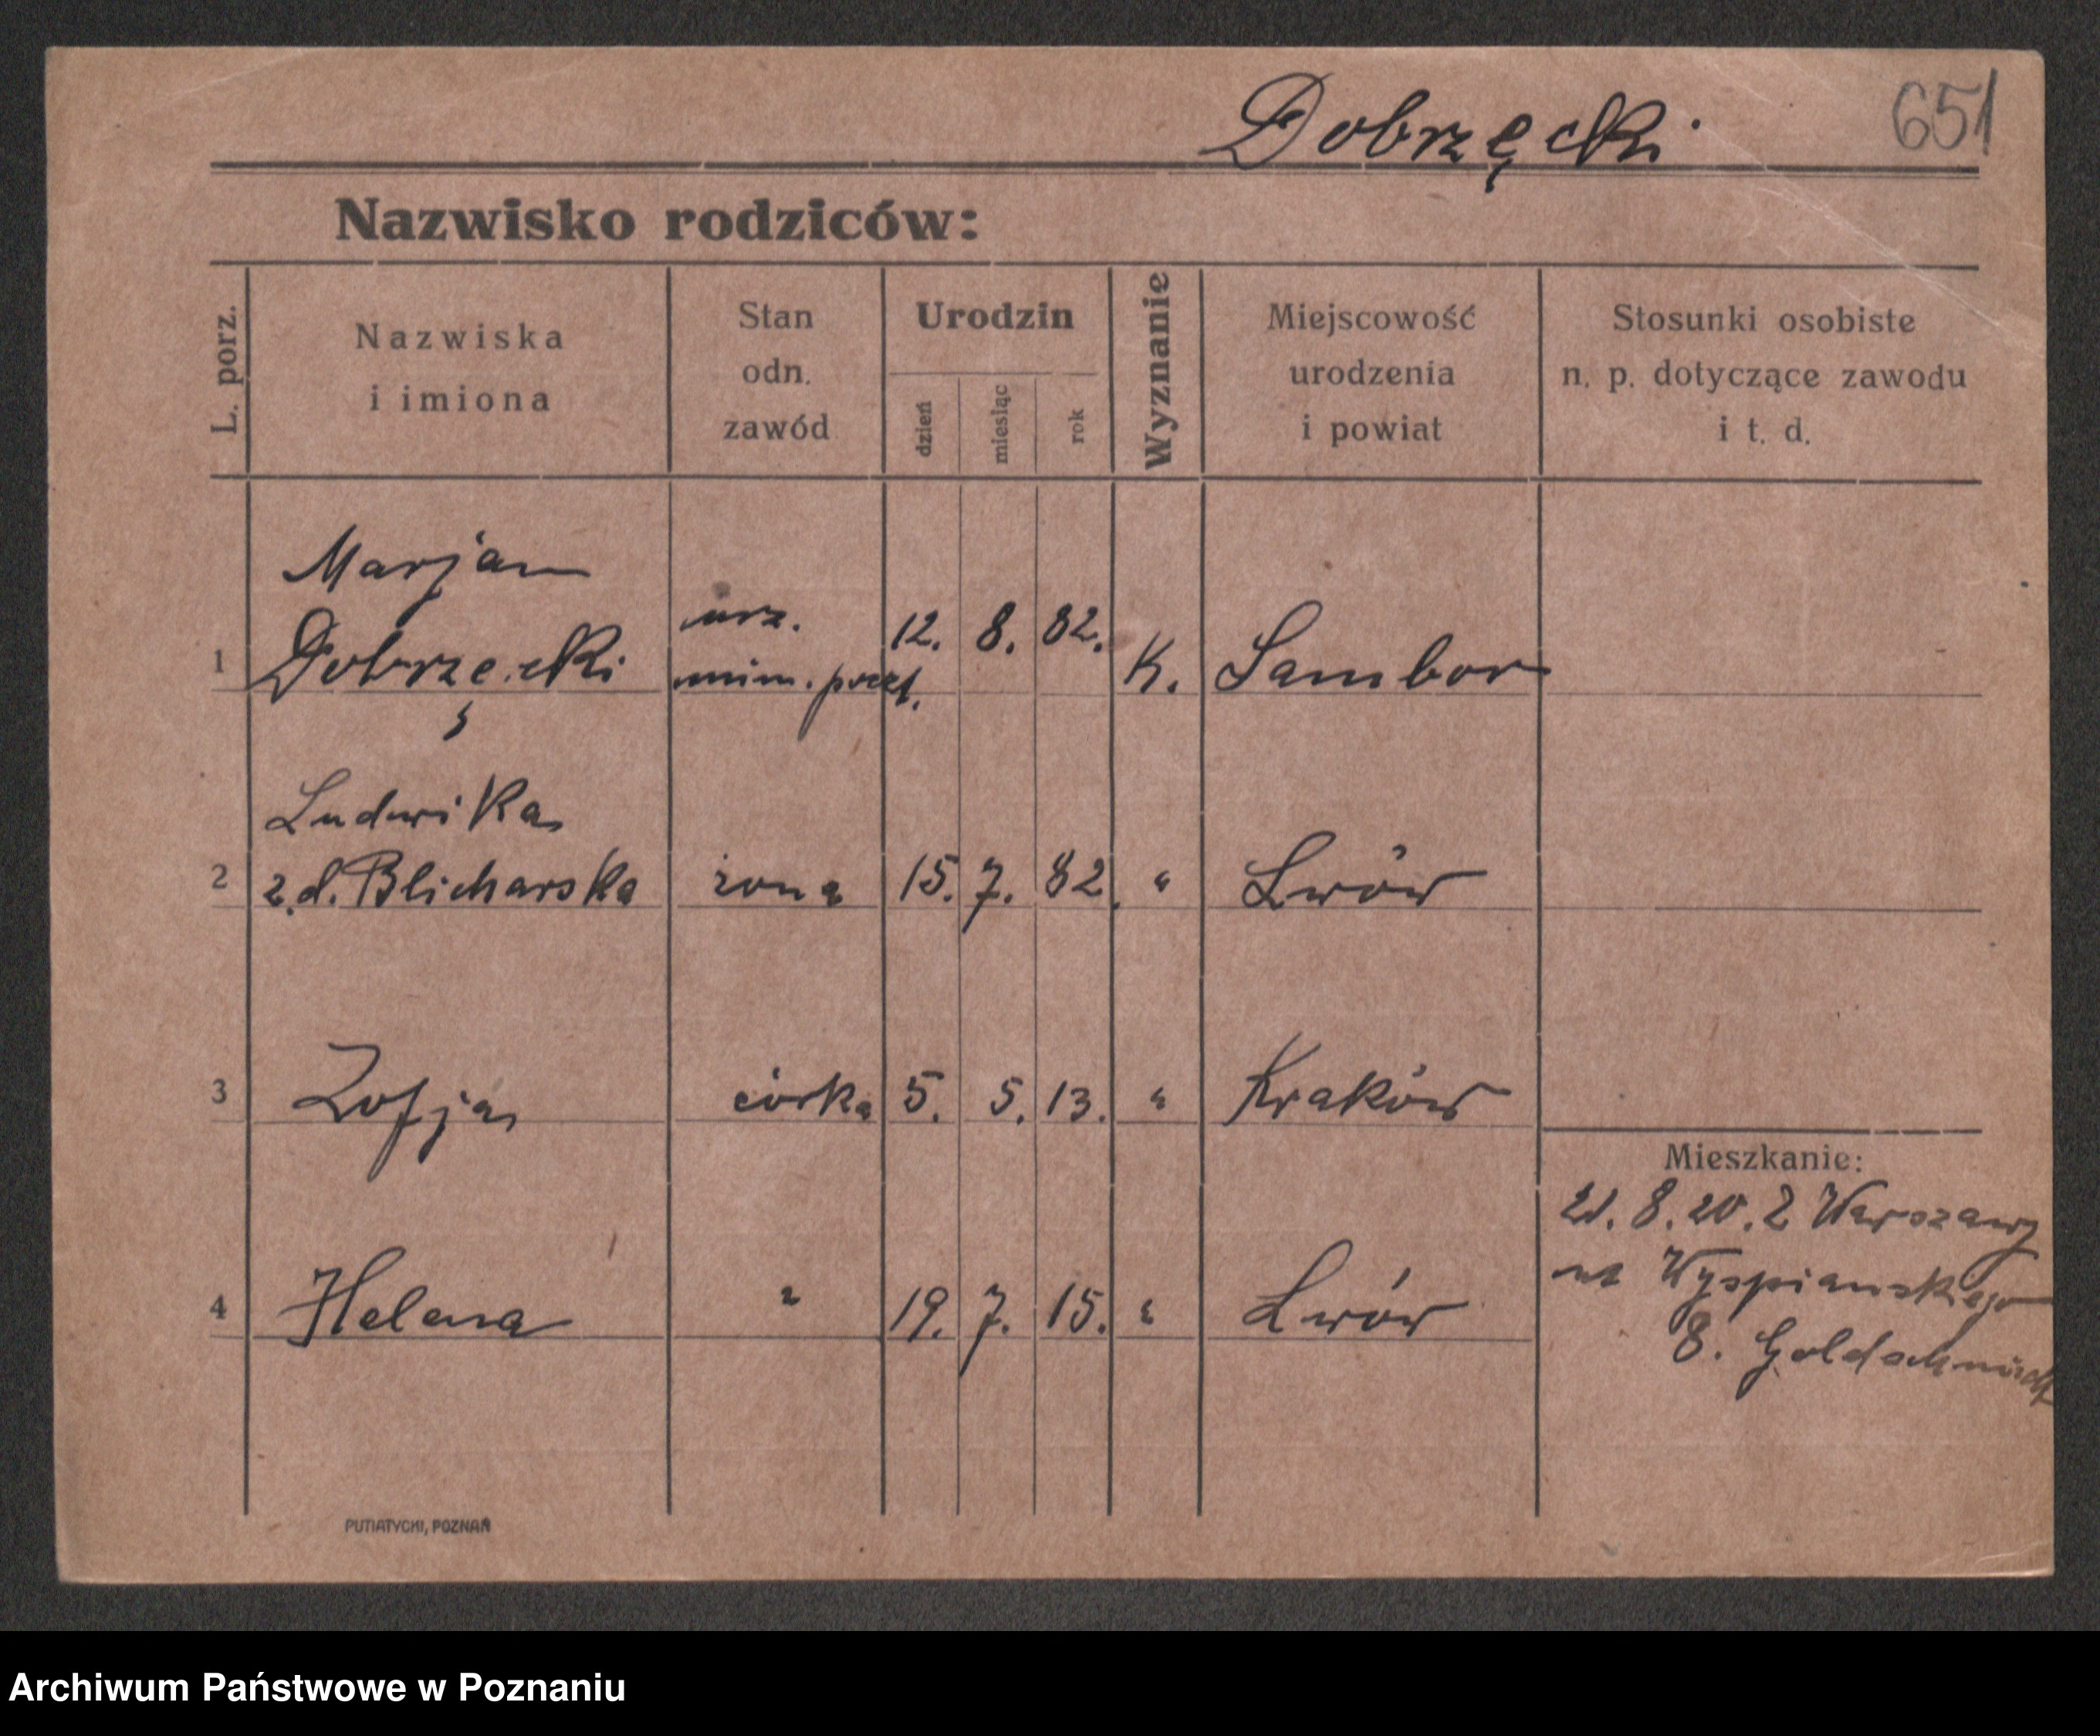 651
Dobrzęcki
Nazwisko rodziców:
L. porz.
Nazwiska
i imiona
Stan
odn.
zawód
Urodzin
dzień
miesiąc
rok
Wyznanie
Miejscowość
urodzenia
i powiat
Stosunki osobiste
n. p. dotyczące zawodu
i t. d.
Marjan
1 Dobrzęcki urz. 12. 8. 82. K. Sambor
min. poczt.
Ludwika
2 z. d. Blicharska żona 15. 7. 82. " Lwów
3 Zofja córka 5. 5. 13. " Kraków
4 Helena " 19. 7. 15. " Lwów
Mieszkanie:
21. 8. 20. Z Warszawy
Wyspianskiego
8. Goldschmidt
PUTIATYCKI, POZNAŃ
Archiwum Państwowe w Poznaniu